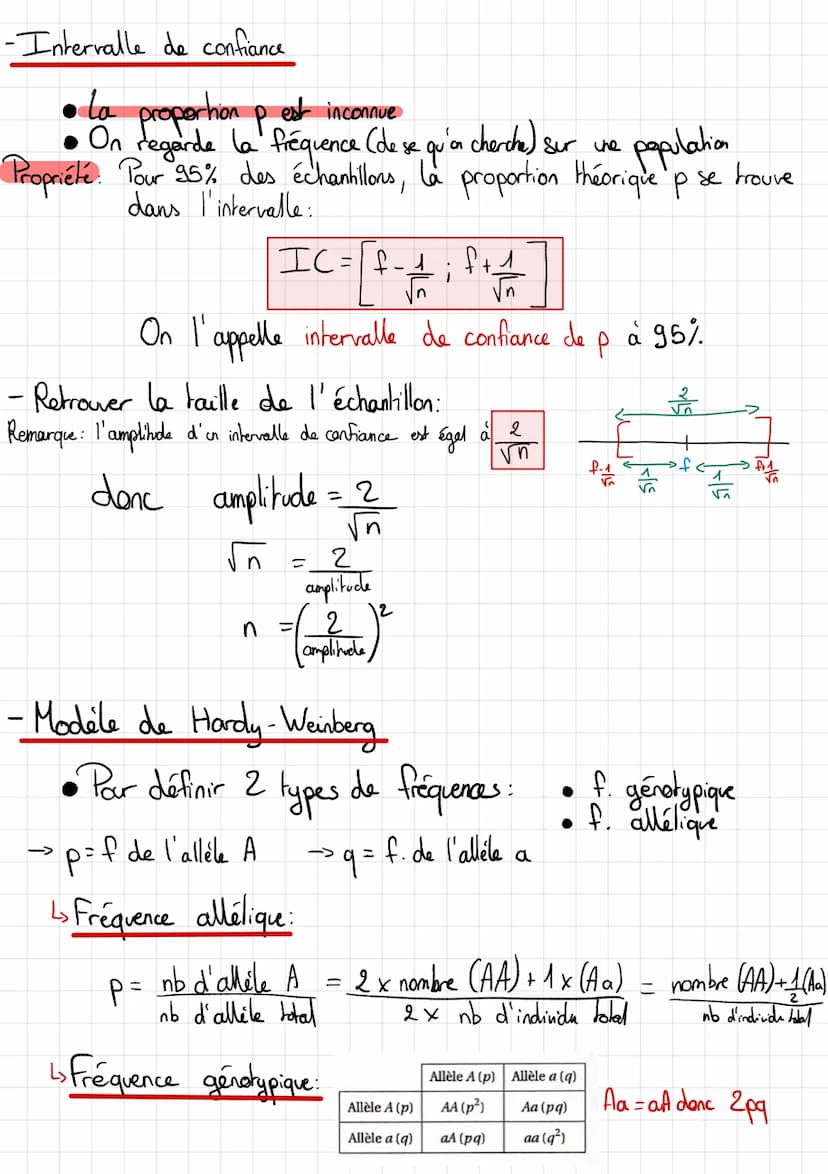 - Intervalle de confiance
• La proportion p est inconnue
• On regarde la fréquence (de se qu'on cherche) sur une population
Propriété: Pour 95% des échantillons, la proportion théorique p se trouve
dans l'intervalle:
IC = [f - 1/√n ; f + 1/√n]
On l'appelle intervalle de confiance de p à 95%.
- Retrouver la taille de l'échantillon:
Remarque: l'amplitude d'un intervalle de confiance est égal à 2/√n
2/√n
f-1/√n 1/√n f 1/√n f+1/√n
donc amplitude = 2/√n
√n = 2/amplitude
n = (2/amplitude)²
- Modèle de Hardy-Weinberg
• Par définir 2 types de fréquences: • f. génotypique
• f. allélique
→ p = f de l'allèle A → q = f. de l'allèle a
↳ Fréquence allélique:
p = nb d'allèle A / nb d'allèle total = 2 x nombre (AA) + 1 x (Aa) / 2 x nb d'individu total = nombre (AA) + 1/2 (Aa) / nb d'individu total
↳ Fréquence génotypique:
Allèle A (p) Allèle a (q)
Allèle A (p) AA (p²) Aa (pq)
Allèle a (q) aA (pq) aa (q²)
Aa = aA donc 2pq